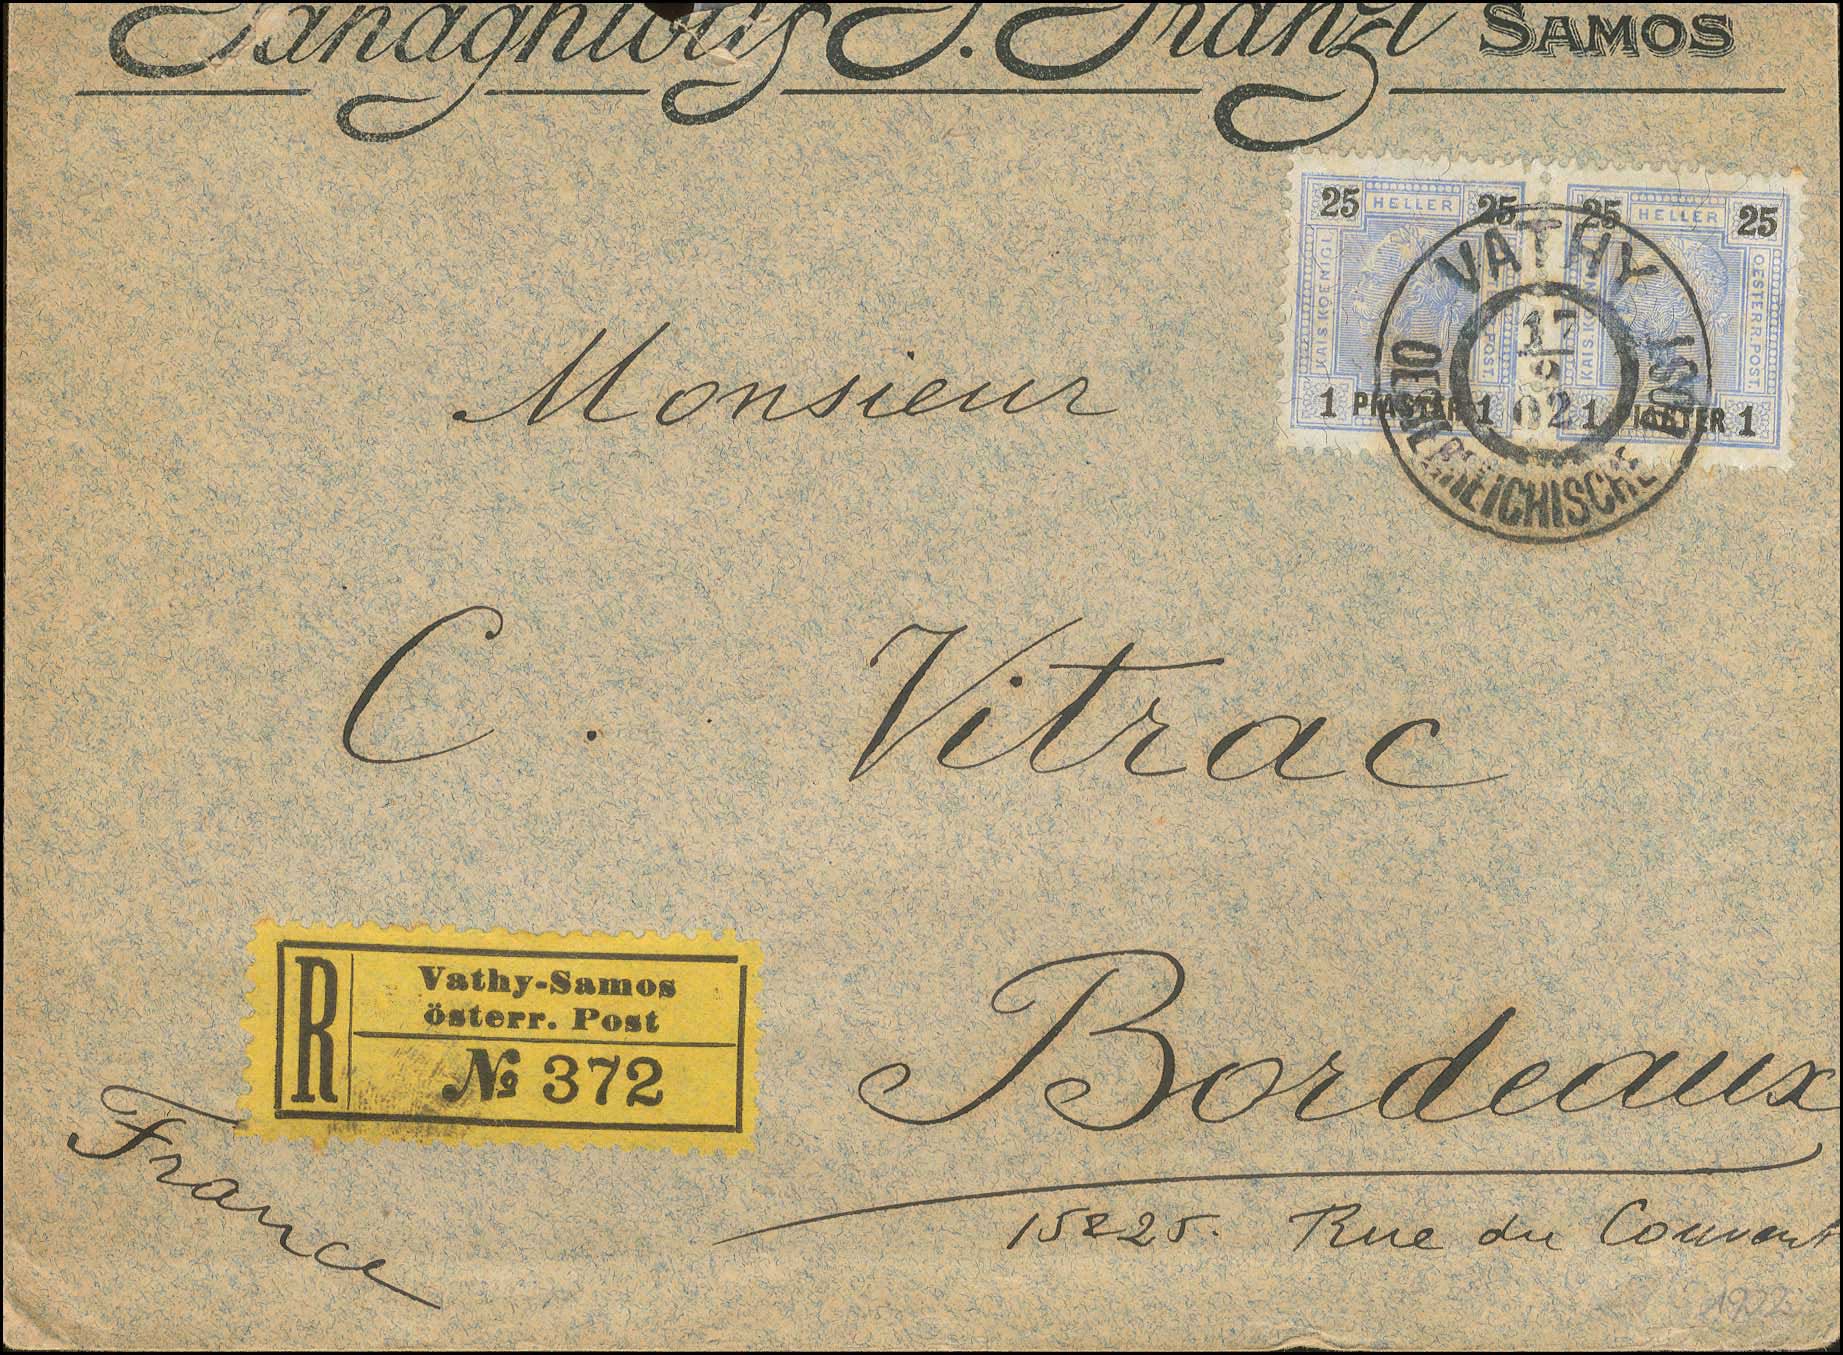 Panaghiotis S. Franzi SAMOS
25 HELLER 25
KAIS. KOENIGL. OESTERR. POST.
1 PIASTER 1
25 HELLER 25
KAIS. KOENIGL. OESTERR. POST.
1 PIASTER 1
VATHY
17
9
02
OESTERREICHISCHE POST
Monsieur
C. Vitrac
R
Vathy-Samos
österr. Post
№ 372
Bordeaux
France
15 & 25. Rue du Couvent